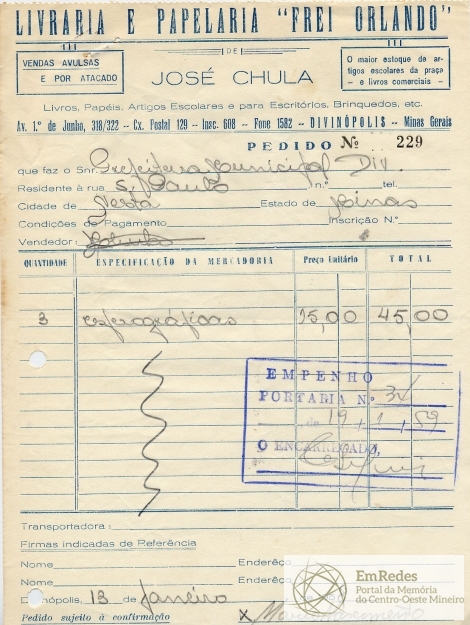 LIVRARIA E PAPELARIA "FREI ORLANDO"
VENDAS AVULSAS
E POR ATACADO
DE
JOSÉ CHULA
O maior estoque de ar-
tigos escolares da praça
e livros comerciais
Livros, Papéis, Artigos Escolares e para Escritórios, Brinquedos, etc.
Av. 1.º de Junho, 318/322 -- Cx. Postal 129 -- Insc. 608 - Fone 1582 -- DIVINÓPOLIS -- Minas Gerais
PEDIDO Nº 229
que faz o Snr. Prefeitura Municipal Div.
Residente à rua S. Paulo n.º tel.
Cidade de Nesta Estado de Minas
Condições de Pagamento Inscrição N.º
Vendedor:
QUANTIDADE ESPECIFICAÇÃO DA MERCADORIA Preço Unitário TOTAL
3 esferográficas 15,00 45,00
EMPENHO
PORTARIA N.º 34
de 19, 1, 59
O ENCARREGADO,
Transportadora:
Firmas indicadas de Referência
Nome Endereço
Nome Endereço
Divinópolis, 13 de Janeiro
Pedido sujeito à confirmação X
EmRedes
Portal da Memória
do Centro-Oeste Mineiro